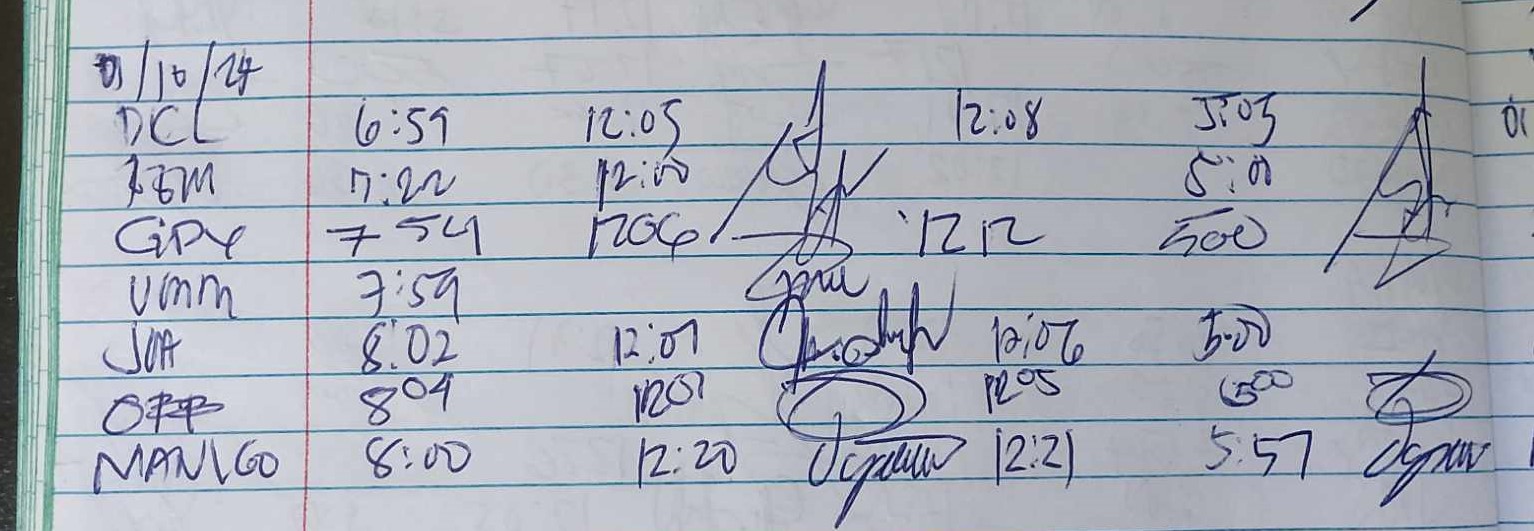 01/10/24
DCL 6:59 12:05 12:08 5:05
7:22 12:00 5:00
GDY 7 54 1206 1212 500
UMM 7:59
JUA 8:02 12:01 12:06 5:00
OFF 804 1201 1205 500
MANIGO 8:00 12:20 12:21 5:57